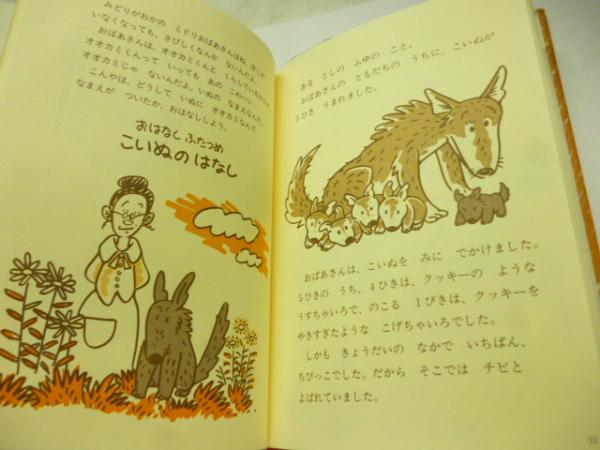 みどりがおかの ミドリおばあさんはね、ぼくが
いなくなっても、さびしくなんか ないんだよ。
おばあさんは、オオカミくんと くらしているからさ。
オオカミくんって いっても あの こわーい
オオカミじゃ ないんだよ。いぬの なまえなんだ。
こんやは、どうして いぬに オオカミなんて
なまえが ついたか、おはなししよう。
おはなし ふたつめ
こいぬの はなし
ある としの ふゆの こと。
おばあさんの ともだちの うちに、こいぬが
5ひき うまれました。
おばあさんは、こいぬを みに でかけました。
5ひきの うち、4ひきは、クッキーの ような
うすちゃいろで、のこる 1ぴきは、クッキーを
やきすぎたような こげちゃいろでした。
しかも きょうだいの なかで いちばん、
ちびっこでした。だから そこでは チビと
よばれていました。